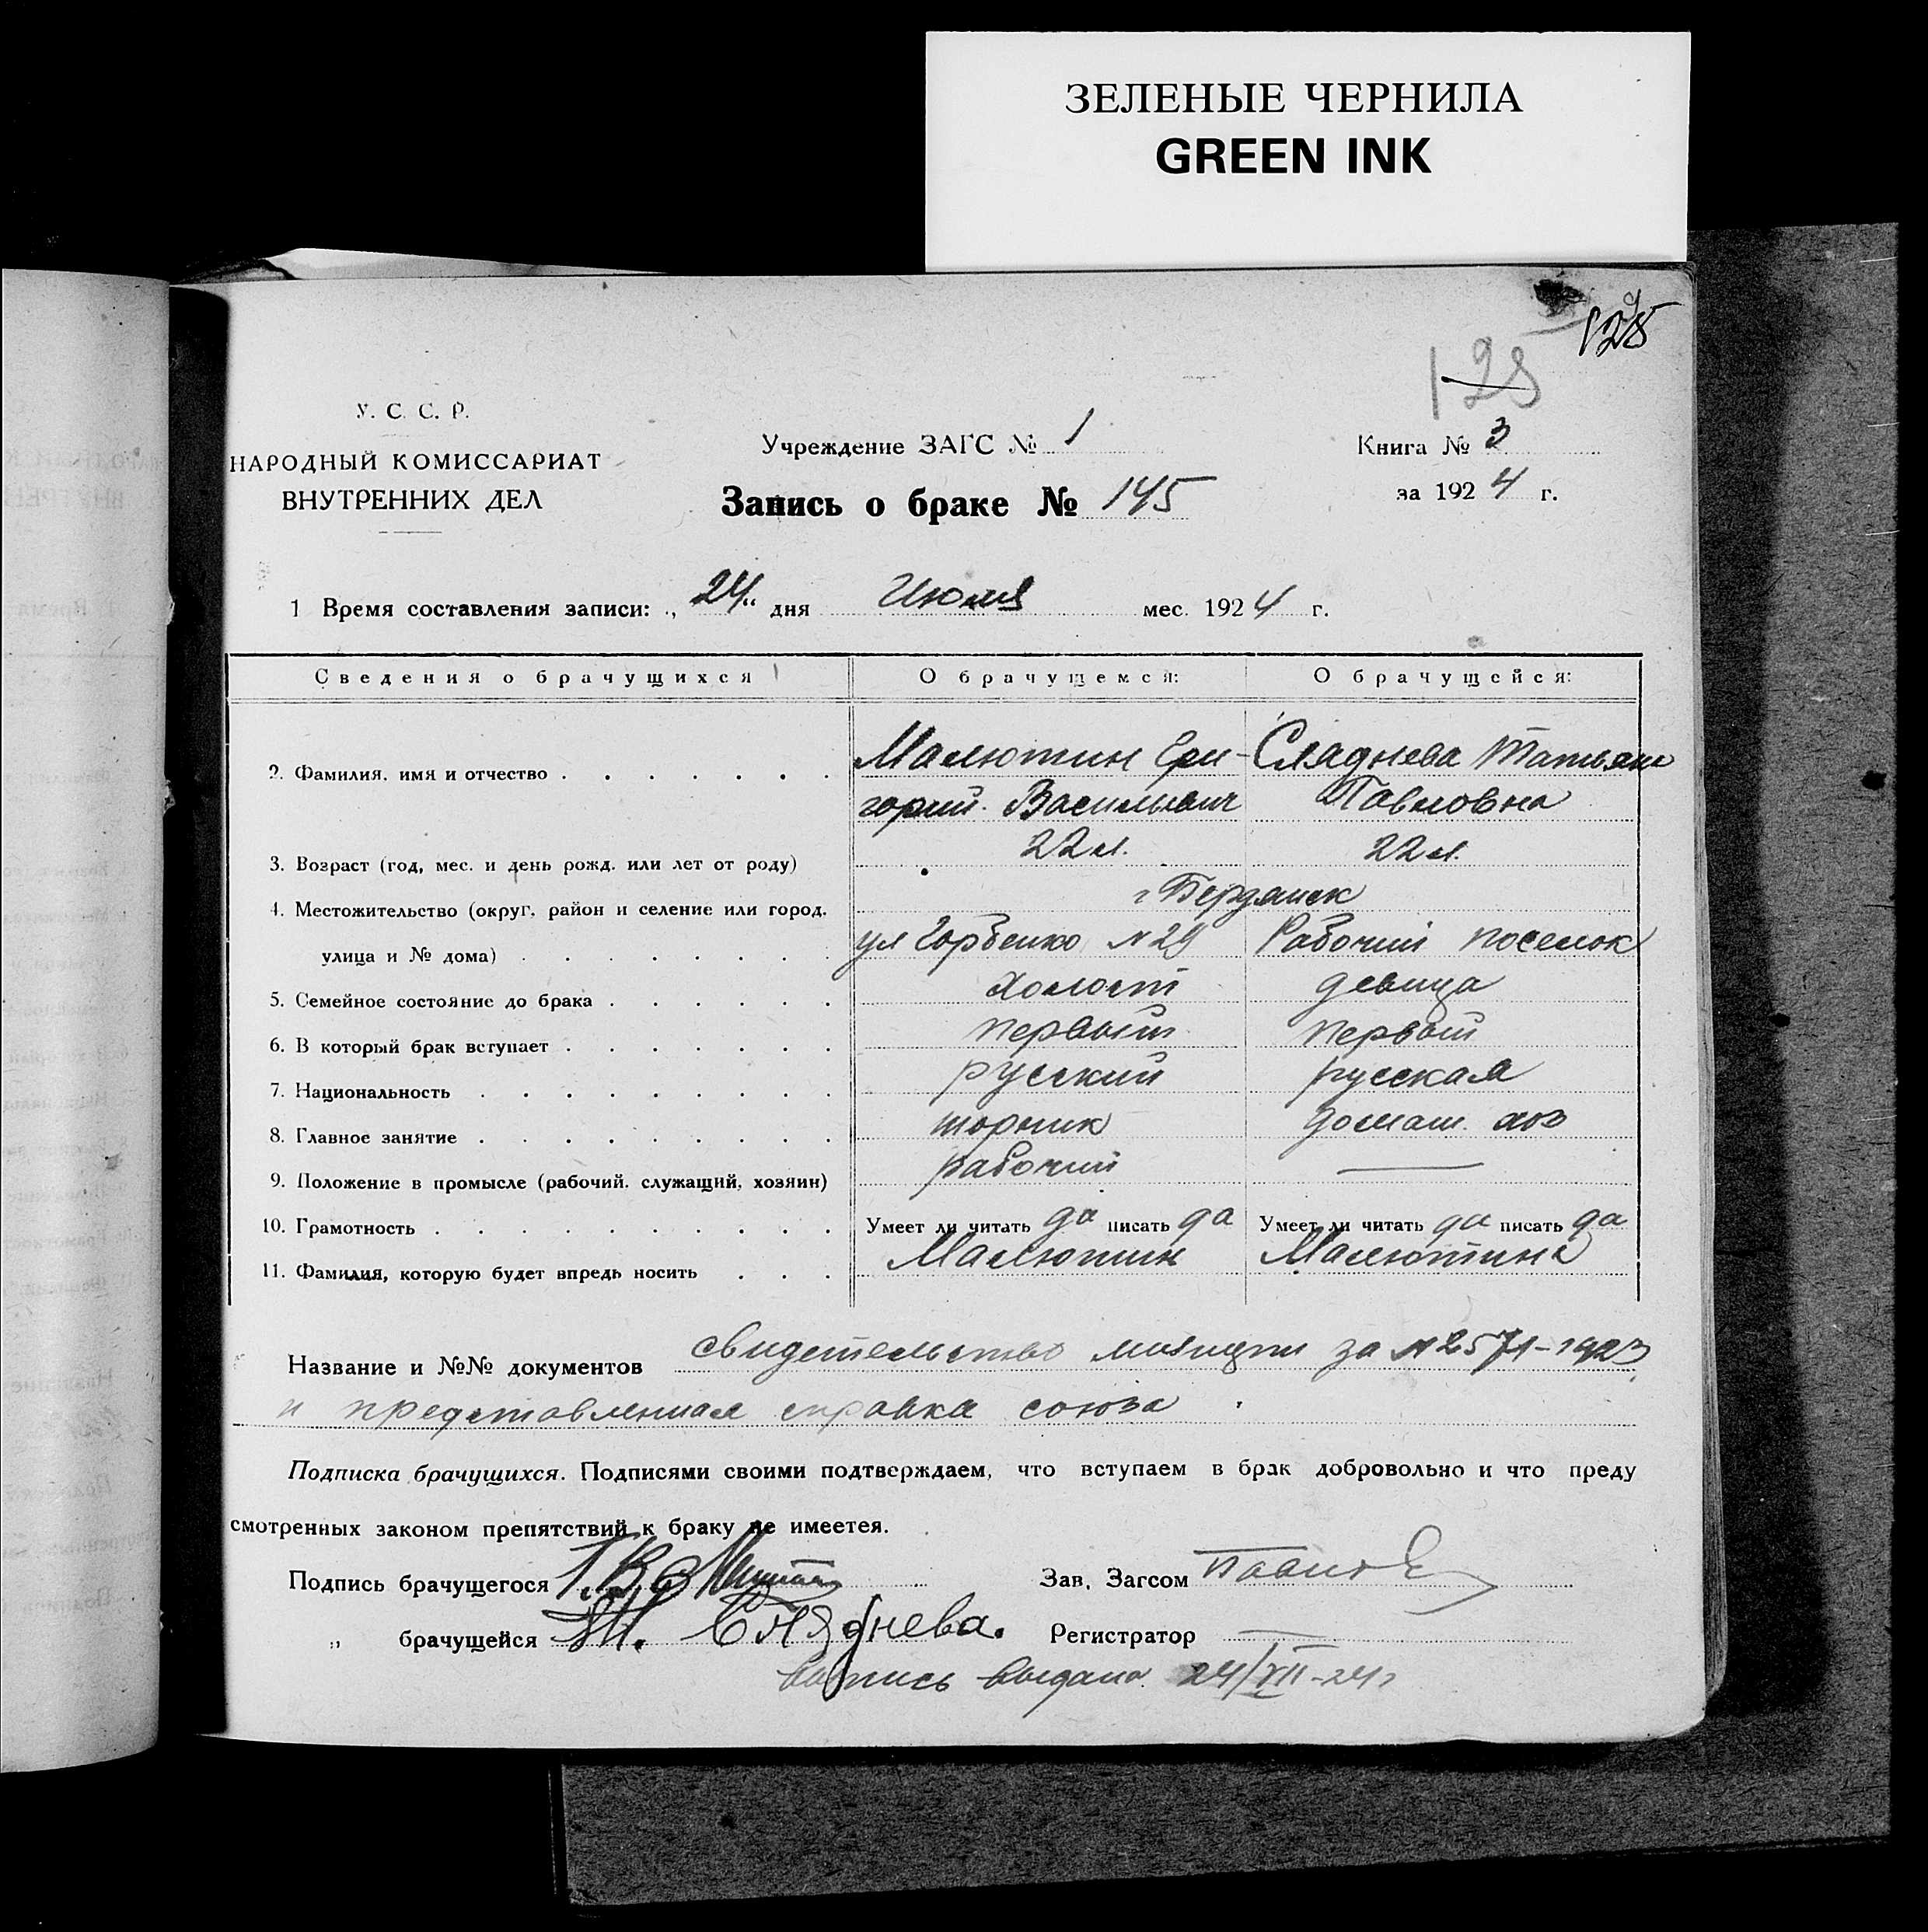 ЗЕЛЕНЫЕ ЧЕРНИЛА
GREEN INK
128
128
У. С. С. Р.
НАРОДНЫЙ КОМИССАРИАТ
ВНУТРЕННИХ ДЕЛ
Учреждение ЗАГС № 1
Запись о браке № 145
Книга № 3
за 1924 г.
1 Время составления записи: „ 24 " дня Июля мес. 1924 г.
Сведения о брачущихся
О брачущемся:
О брачущейся:
2. Фамилия, имя и отчество . . . . . . . Малютин Гри- Сляднева Татьяна
горий Васильевич Павловна
3. Возраст (год, мес. и день рожд. или лет от роду) 22 л. 22 л.
4. Местожительство (округ, район и селение или город, г Бердянск
улица и № дома) . . . . . . . . ул Горбенко N 29 Рабочий поселок
5. Семейное состояние до брака . . . . . . холост девица
6. В который брак вступает . . . . . . . первый первый
7. Национальность . . . . . . . . . русский русская
8. Главное занятие . . . . . . . . . шорник домаш. хоз
9. Положение в промысле (рабочий, служащий, хозяин) рабочий —
10. Грамотность . . . . . . . . . . Умеет ли читать да писать да Умеет ли читать да писать да
11. Фамилия, которую будет впредь носить . . . Малютин Малютина
Название и №№ документов свидетельство милиции за N 2571-1923
и представленная справка союза
Подписка брачущихся. Подписями своими подтверждаем, что вступаем в брак добровольно и что преду
смотренных законом препятствий к браку не имеетея.
Подпись брачущегося Зав. Загсом
„ брачущейся Т. Сляднева. Регистратор
выпись выдана 24/VII-24г